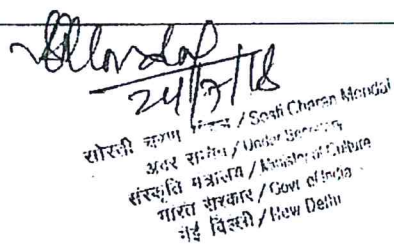 24/7/18
चरण / Charan Mondal
अवर सचिव / Under Secretary
संस्कृति मंत्रालय / Ministry of Culture
भारत सरकार / Govt of India
नई दिल्ली / New Delhi